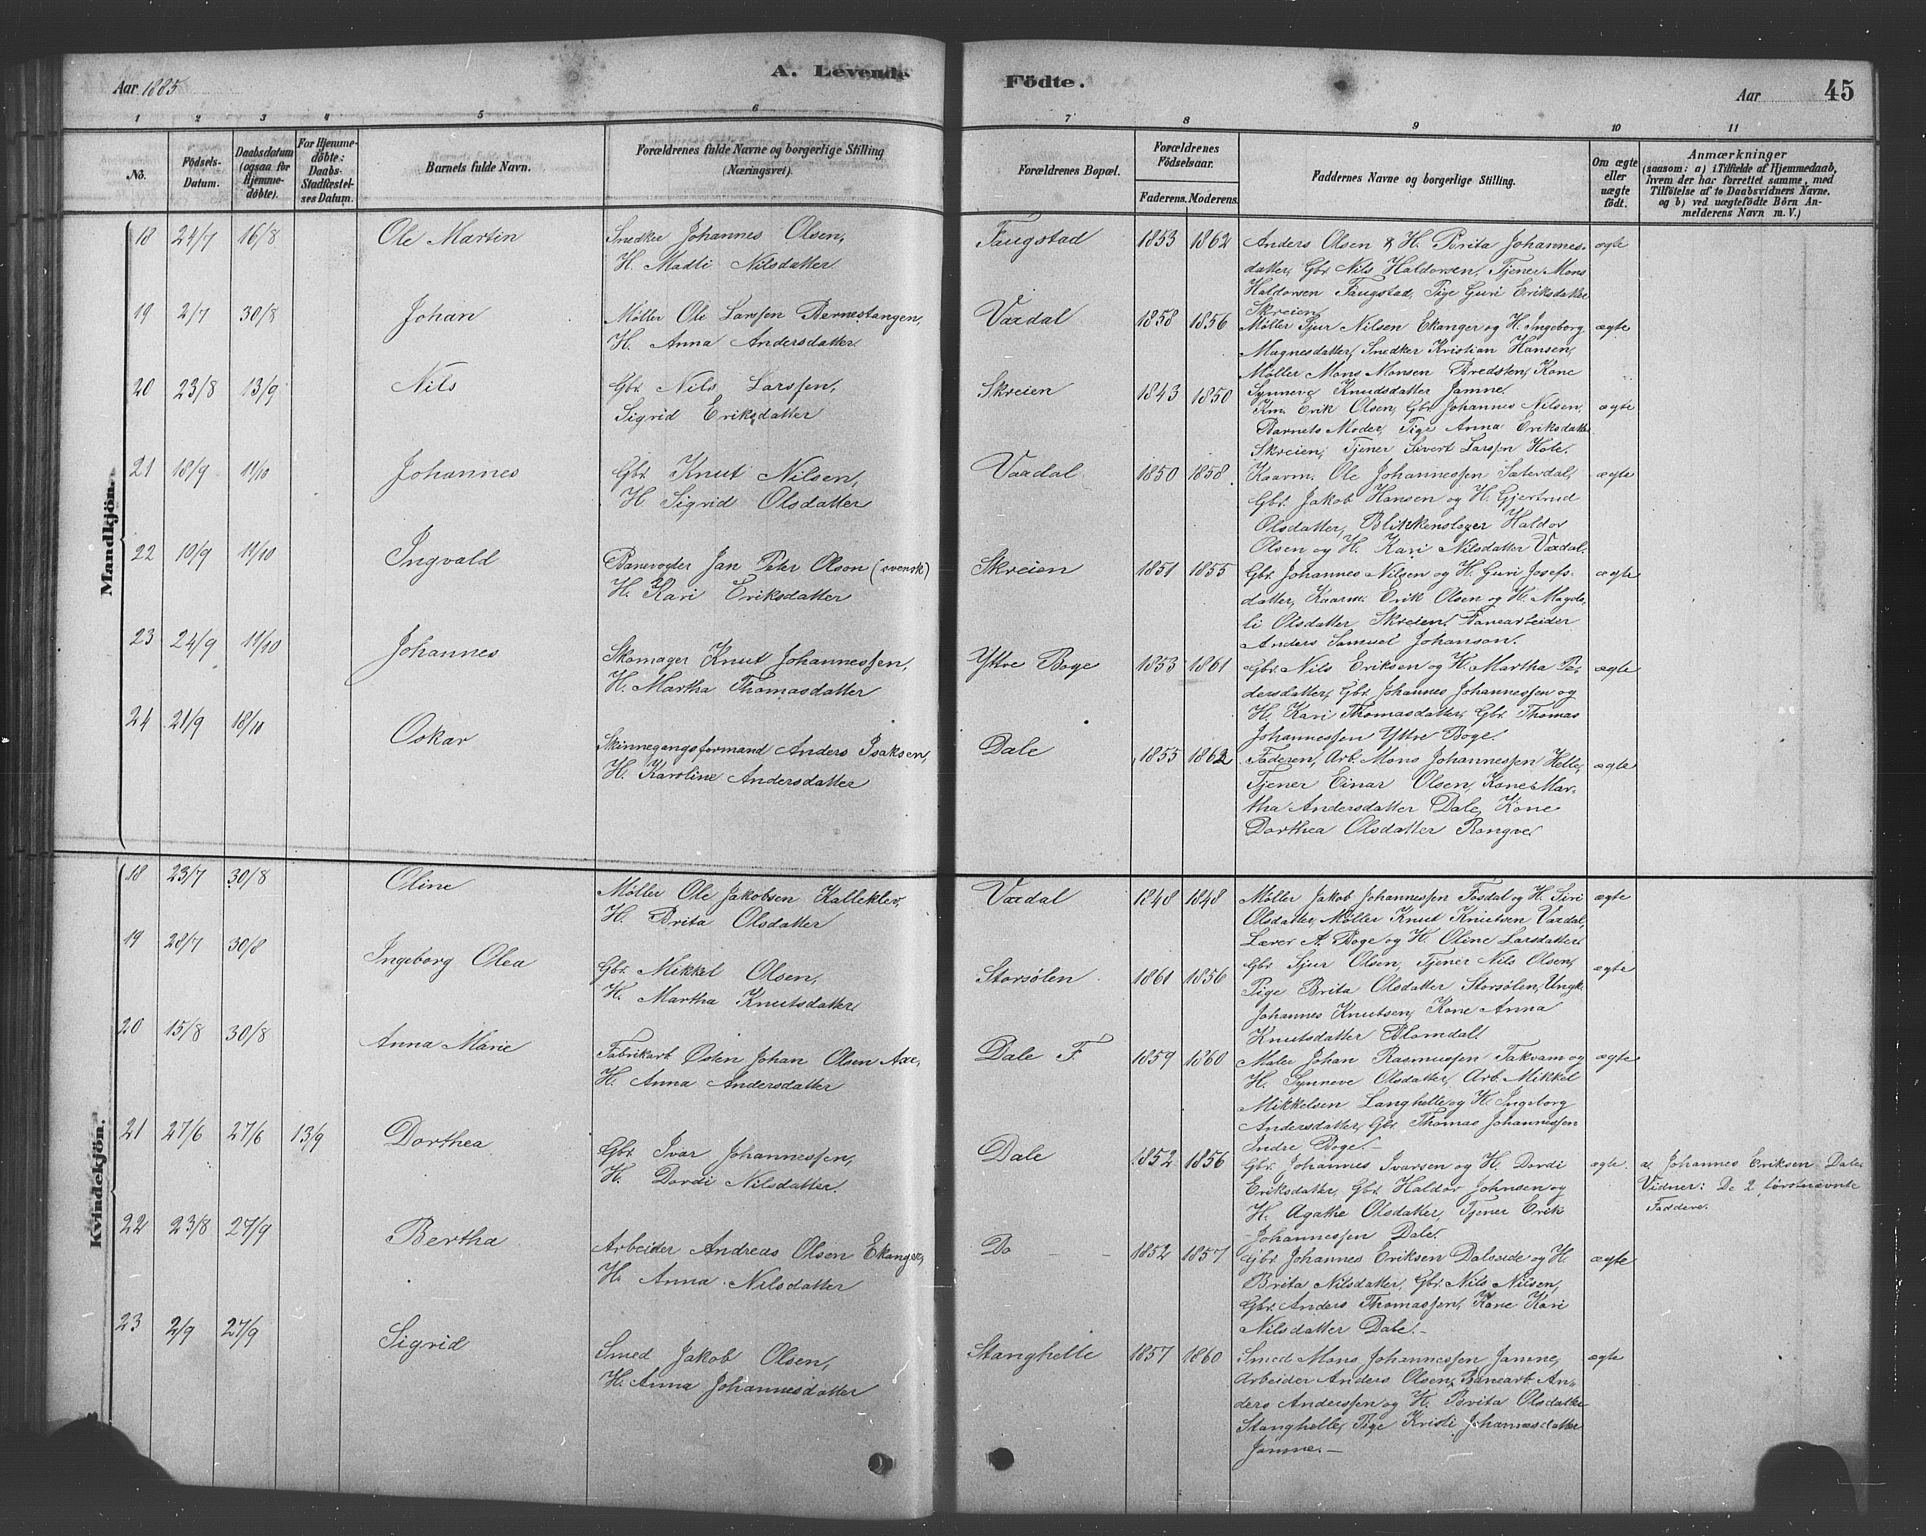 Aar 1885
A. Levende
Födte.
Aar
45
1 2 3 4 5 6 7 8 9 10 11
No.
Födsels-
Datum.
Daabsdatum
(ogsaa for
Hjemme-
döbte).
For Hjemme-
döbte:
Daabs-
Stadfæstel-
ses Datum.
Barnets fulde Navn.
Forældrenes fulde Navne og borgerlige Stilling
(Næringsvei).
Forældrenes Bopæl.
Forældrenes
Födselsaar.
Faderens. Moderens.
Faddernes Navne og borgerlige Stilling.
Om ægte
eller
uægte
födt.
Anmærkninger
(saasom: a) i Tilfælde af Hjemmedaab,
hvem der har forrettet samme, med
Tilföielse af to Daabsvidners Navne,
og b) ved uægtefödte Börn An-
melderens Navn m. V.)
Mandkjön.
18 24/7 16/8 Ole Martin
Snedker Johannes Olsen,
H. Madli Nilsdatter
Faugstad 1853 1862
Anders Olsen & H. Brita Johannes-
datter, Gbr. Nils Haldorsen, Tjener Mons
Haldorsen Faugstad, Pige Guri Eriksdatter
Skreien
ægte
19 2/7 30/8 Johan
Møller Ole Larssen Bernestangen,
H. Anna Andersdatter
Vaxdal 1858 1856
Møller Sjur Nilsen Ekanger og H. Ingeborg
Magnesdatter, Snedker Kristian Hansen,
Møller Mons Monsen Bredsten, Kone
Synneve Knudsdatter Jamne.
ægte
20 23/8 13/9 Nils
Gbr. Nils Larssen,
Sigrid Eriksdatter
Skreien 1843 1850
Km. Erik Olsen, Gbr. Johannes Nilsen,
Barnets Moder, Pige Anna Eriksdatter
Skreien, Tjener Sivert Larssen Hole.
ægte
21 18/9 11/10 Johannes
Gbr. Knut Nilsen,
H. Sigrid Olsdatter
Vaxdal 1850 1858
Kaarm. Ole Johannessen Sæterdal,
Gbr. Jakob Hansen og H. Gjertrud
Olsdatter, Blikkenslager Haldor
Olsen og H. Kari Nilsdatter Vaxdal.
ægte
22 10/9 11/10 Ingvald
Banevogter Jan Peter Olson (svensk)
H. Kari Eriksdatter
Skreien 1851 1855
Gbr. Johannes Nilsen og H. Guri Josefs-
datter, Kaarm. Erik Olsen og H. Magda-
li Olsdatter Skreien. Banearbeider
Anders Samuel Johanson.
ægte
23 24/9 11/10 Johannes
Skomager Knut Johannessen,
H. Martha Thomasdatter
Yttre Boge 1853 1861
Gbr. Nils Eriksen og H. Martha Pe-
dersdatter, Gbr. Johannes Johannessen og
H. Kari Thomasdatter, Gbr. Thomas
Johannessen Yttre Boge.
ægte
24 21/9 18/10 Oskar
Skinnegangsformand Anders Isaksen,
H. Karoline Andersdatter
Dale 1855 1862
Faderen, Arb. Mons Johannessen Helle,
Tjener Einar Olsen, Kone Mar-
tha Andersdatter Dale, Kone
Dorthea Olsdatter Rongve
ægte
Kvindekjön.
18 23/7 30/8 Oline
Møller Ole Jakobsen Kalleklev,
H. Brita Olsdatter
Vaxdal 1848 1848
Møller Jakob Johannessen Fosdal og H. Siri
Olsdatter, Møller Knut Knutsen Vaxdal,
Lærer A. Boge og H. Oline Larsdatter.
ægte
19 28/7 30/8 Ingeborg Olea
Gbr. Mikkel Olsen,
H. Martha Knutsdatter
Storsølen 1861 1856
Gbr. Sjur Olsen, Tjener Nils Olsen,
Pige Brita Olsdatter Storsølen, Ungk.
Johannes Knutsen, Kone Anna
Knutsdatter Blomdal.
ægte
20 15/8 30/8 Anna Marie
Fabrikarb. Østen Johan Olsen Axe,
H. Anna Andersdatter
Dale F. 1859 1860
Maler Johan Rasmussen Takvam og
H. Synneve Olsdatter, Arb. Mikkel
Mikkelsen Langhelle og H. Ingeborg
Andersdatter, Gbr. Thomas Johannessen
Indre Boge.
ægte
21 27/6 27/6 13/9 Dorthea
Gbr. Ivar Johannessen,
H. Dordi Nilsdatter
Dale 1852 1856
Gbr. Johannes Ivarsen og H. Dordi
Eriksdatter, Gbr. Haldor Johnsen og
H. Agathe Olsdatter, Tjener Erik
Johannessen Dale.
ægte.
a. Johannes Eriksen Dale.
Vidner: De 2 førstnævnte
Faddere.
22 23/8 27/9 Bertha
Arbeider Andreas Olsen Ekanger,
H. Anna Nilsdatter
Do - - 1852 1857
Gbr. Johannes Eriksen Dalseide og H.
Brita Nilsdatter, Gbr. Nils Nilsen,
Gbr. Anders Thomassen, Kone Kari
Nilsdatter Dale.-
ægte
23 2/9 27/9 Sigrid
Smed Jakob Olsen,
H. Anna Johannesdatter
Stanghelle 1857 1860
Smed Mons Johannessen Jamne,
Arbeider Anders Olsen, Banearb. An-
ders Anderssen og H. Brita Olsdatter
Stanghelle, Pige Kristi Johannesdatter
Jamne.-
ægte